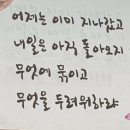 어제는 이미 지나갔고
내일은 아직 돌아오지
무엇에 묶이고
무엇을 두려워하랴